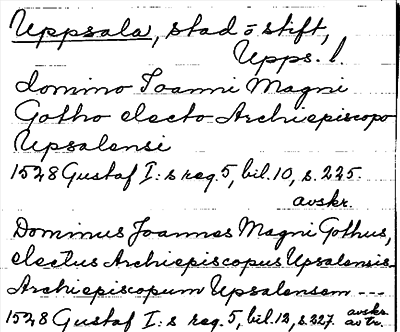 Uppsala, stad o stift,
Upps. l.
domino Joanni Magni
Gotho electo Archiepiscopo
Upsalensi
1528 Gustaf I:s reg. 5, bil. 10, s. 225.
avskr.
Dominus Joannes Magni Gothus,
electus Archiepiscopus Upsalensis
Archiepiscopum Upsalensem ---
1528 Gustaf I:s reg. 5, bil. 12, s. 227. avskr.
av tr.